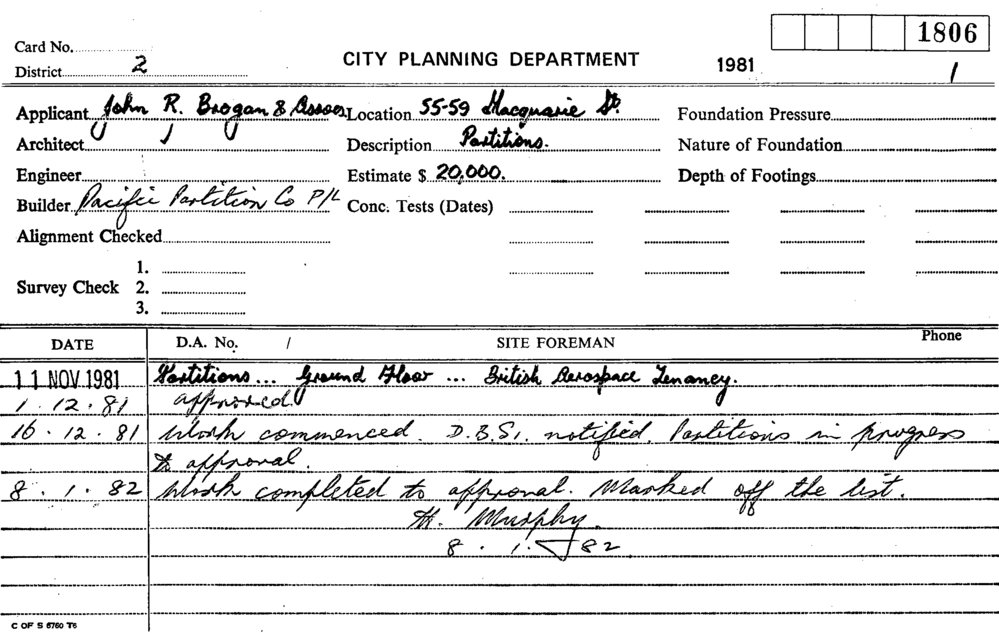 1806
Card No.
CITY PLANNING DEPARTMENT 1981 1
District 2
Applicant John R. Brogan & Assocs Location 55-59 Macquarie St. Foundation Pressure
Architect Description Partitions. Nature of Foundation
Engineer Estimate $ 20,000. Depth of Footings
Builder Pacific Partition Co P/L Conc. Tests (Dates)
Alignment Checked
1.
Survey Check 2.
3.
DATE D.A. No. / SITE FOREMAN Phone
11 NOV 1981 Partitions... Ground Floor... British Aerospace Tenancy.
1.12.81 approved.
16.12.81 Work commenced. D.B.S. notified. Partitions in progress
to approval.
8.1.82 Work completed to approval. Marked off the list.
Murphy.
8.1.82
C OF S 6760 T6